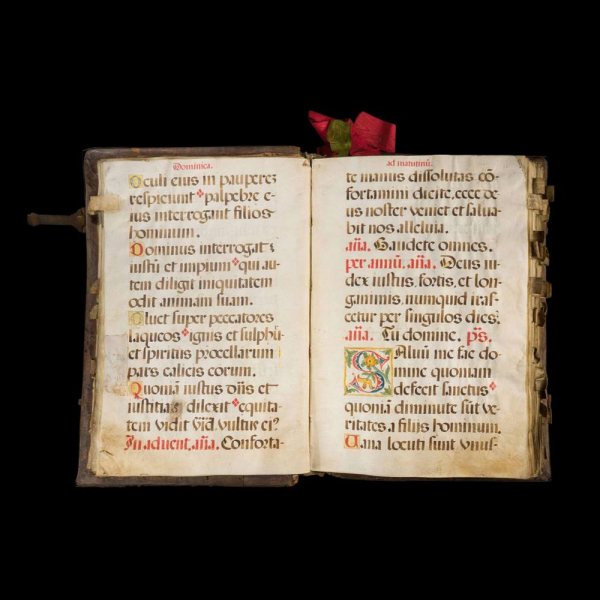 Dominica.
Oculi eius in pauperez
respiciunt palpebre e-
ius interrogant filios
hominum.
Dominus interrogat
iustū et impium qui au-
tem diligit iniquitatem
odit animam suam.
Pluet super peccatores
laqueos ignis et sulphū
et spiritus procellarum
pars calicis eorum.
Quoniā iustus dn̄s et
iustitias dilexit equita-
tem vidit vultus ei?
In aduent. an̄a. Conforta-
ad matutinū.
te manus dissolutas cō-
fortamini dicite, ecce de-
us noster veniet et salua-
bit nos alleluia.
an̄a. Gaudete omnes.
per annū. an̄a. Deus iu-
dex iustus, fortis, et lon-
ganimis, nunquid iras-
cetur per singulos dies.
an̄a. Tu domine. ps.
Saluū me fac do-
mine quoniam
defecit sanctus
quoniā diminute sūt ve-
ritates a filiis hominum.
Uana locuti sunt vnus-